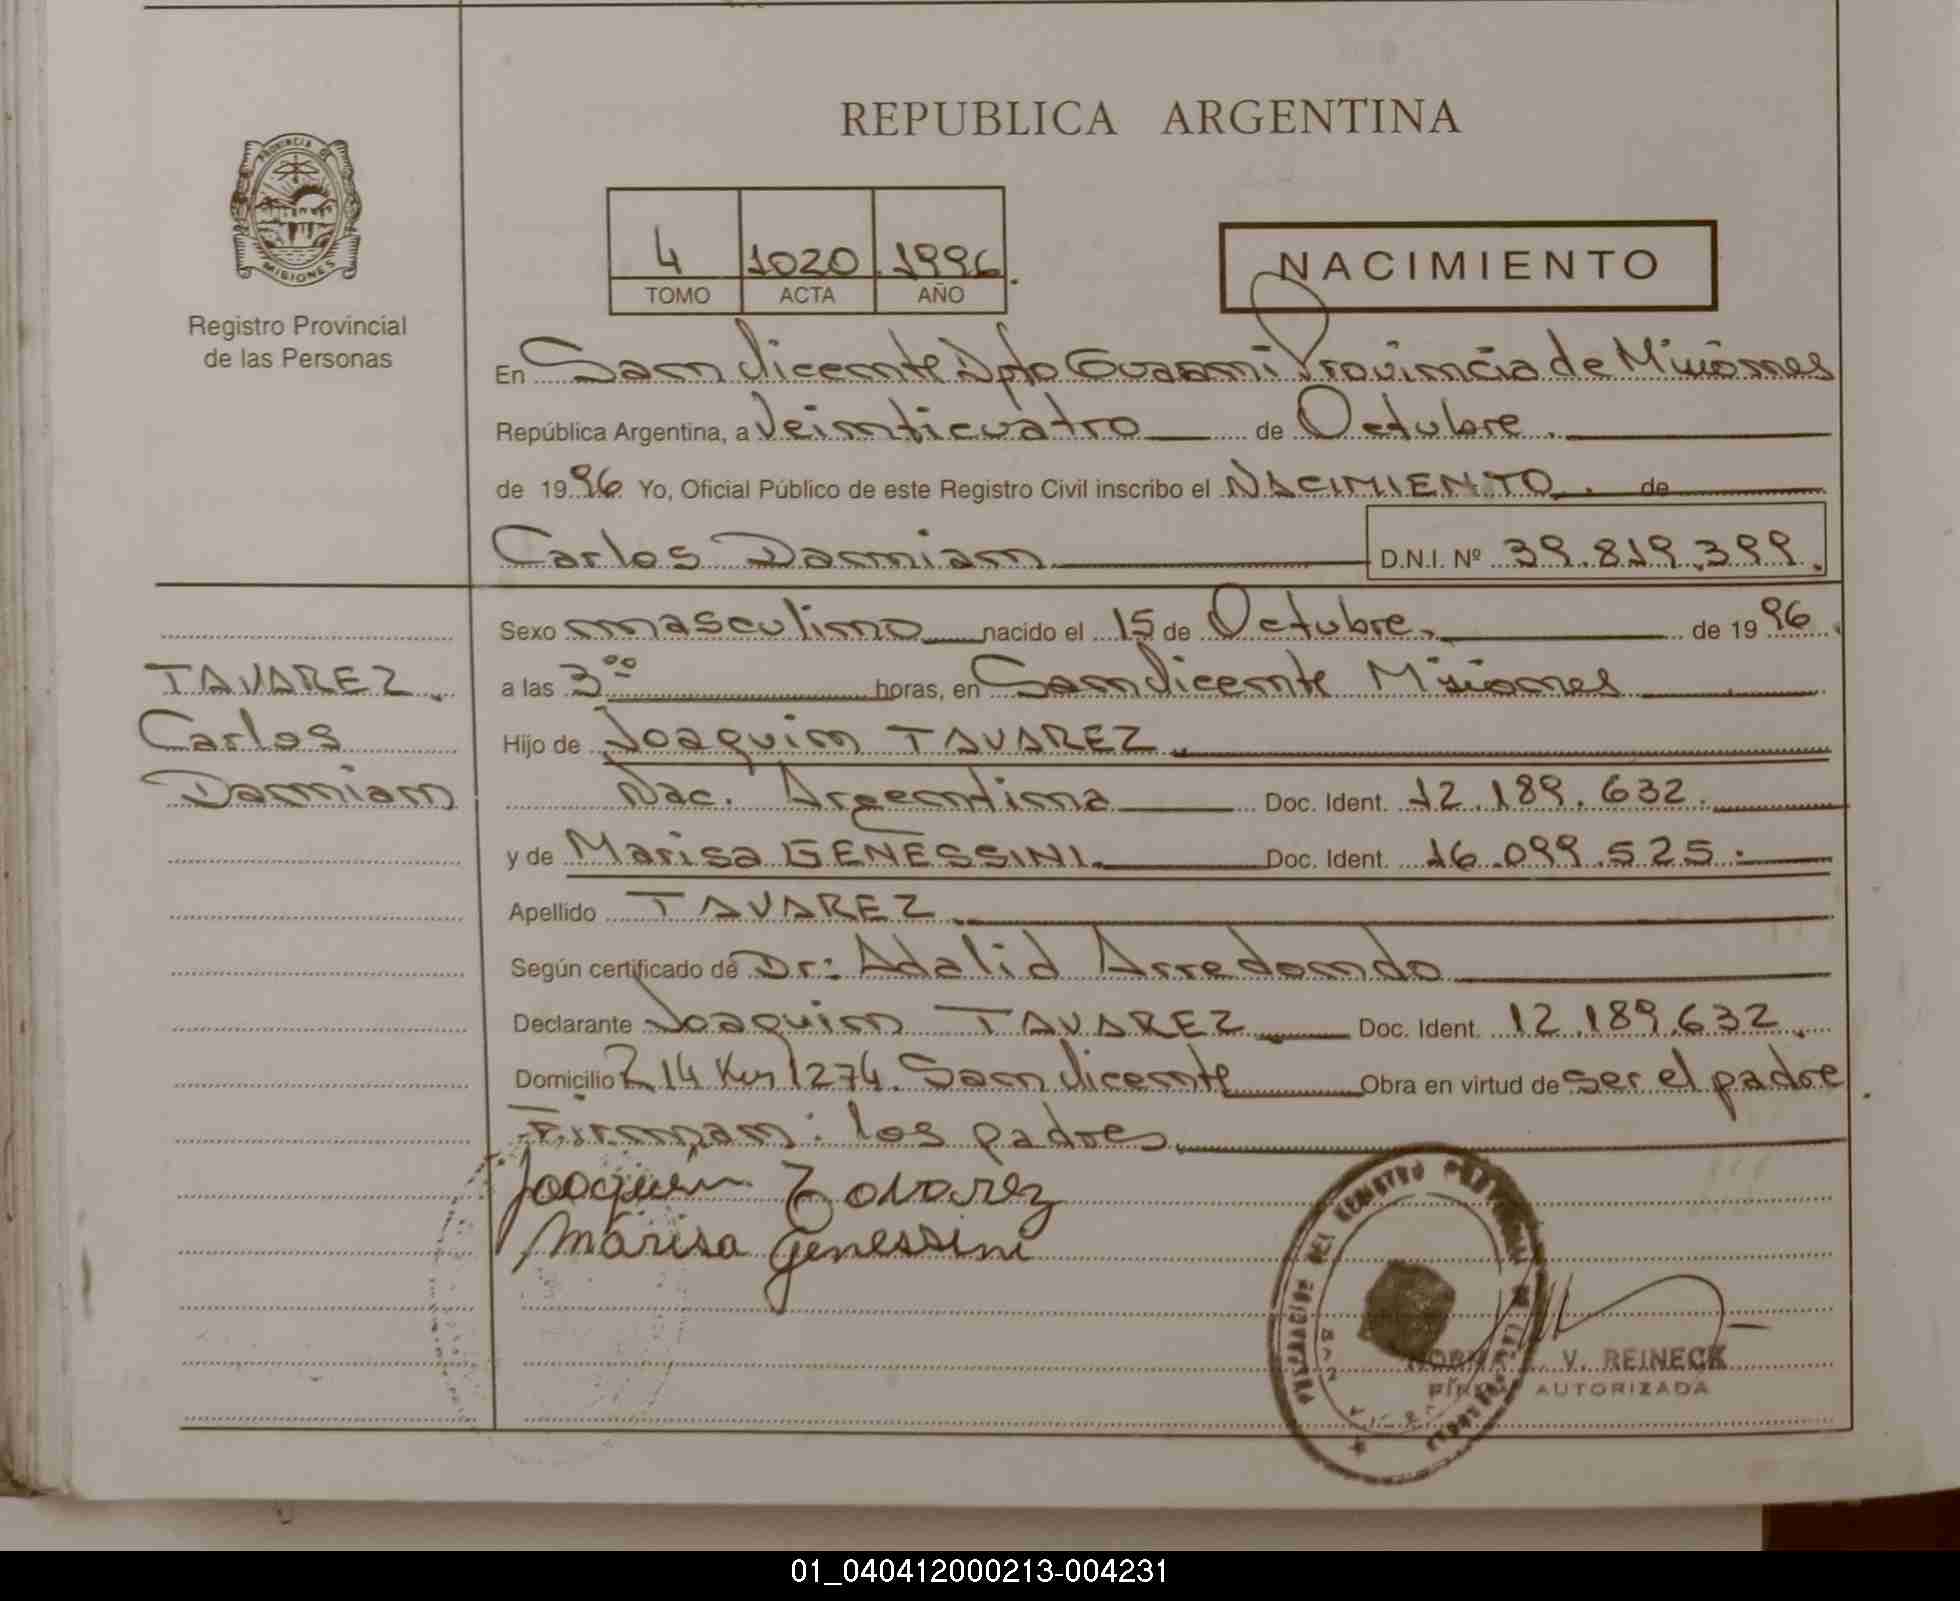 REPUBLICA ARGENTINA
PROVINCIA DE
MISIONES
Registro Provincial
de las Personas
4 1020 1996.
TOMO ACTA AÑO
NACIMIENTO
En San Vicente Dpto Guaraní Provincia de Misiones
República Argentina, a Veinticuatro de Octubre.
de 1996 Yo, Oficial Público de este Registro Civil inscribo el NACIMIENTO. de
Carlos Damian D.N.I. Nº 39.819.399.
Sexo masculino nacido el 15 de Octubre. de 1996.
TAVAREZ.
Carlos
Damian
a las 3⁰⁰ horas, en San Vicente Misiones
Hijo de Joaquin TAVAREZ.
Nac. Argentina Doc. Ident. 12.189.632.
y de Marisa GENESSINI. Doc. Ident. 16.099.525.
Apellido TAVAREZ.
Según certificado de Dr: Adalid Arredondo
Declarante Joaquin TAVAREZ Doc. Ident. 12.189.632.
Domicilio R 14 Km 1274. San Vicente Obra en virtud de ser el padre.
Firman: los padres.
Joaquin Tavarez
Marisa Genessini
DEL REGISTRO PROVINCIAL DE LAS PERSONAS
V. REINECK
FIRMA AUTORIZADA
01_040412000213-004231